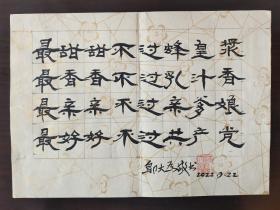 最甜甜不过蜂皇浆
最香香不过乳汁香
最亲亲不过亲爹娘
最好好不过共产党
2022.9.22